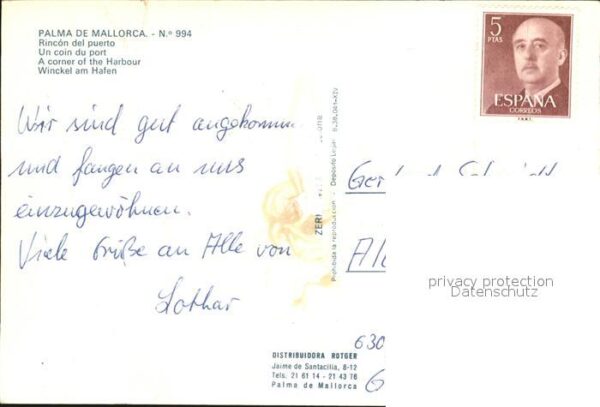 PALMA DE MALLORCA. - N.º 994
Rincón del puerto
Un coin du port
A corner of the Harbour
Winckel am Hafen
5
PTAS
ESPAÑA
CORREOS
Wir sind gut angekomm
und fangen an uns
einzugewöhnen.
Viele Grüße an Alle von
Lothar
Prohibida la reproducción - Depósito Legal
privacy protection
Datenschutz
630
G
DISTRIBUIDORA ROTGER
Jaime de Santacilia, 8-12
Tels. 21 61 14 - 21 43 76
Palma de Mallorca